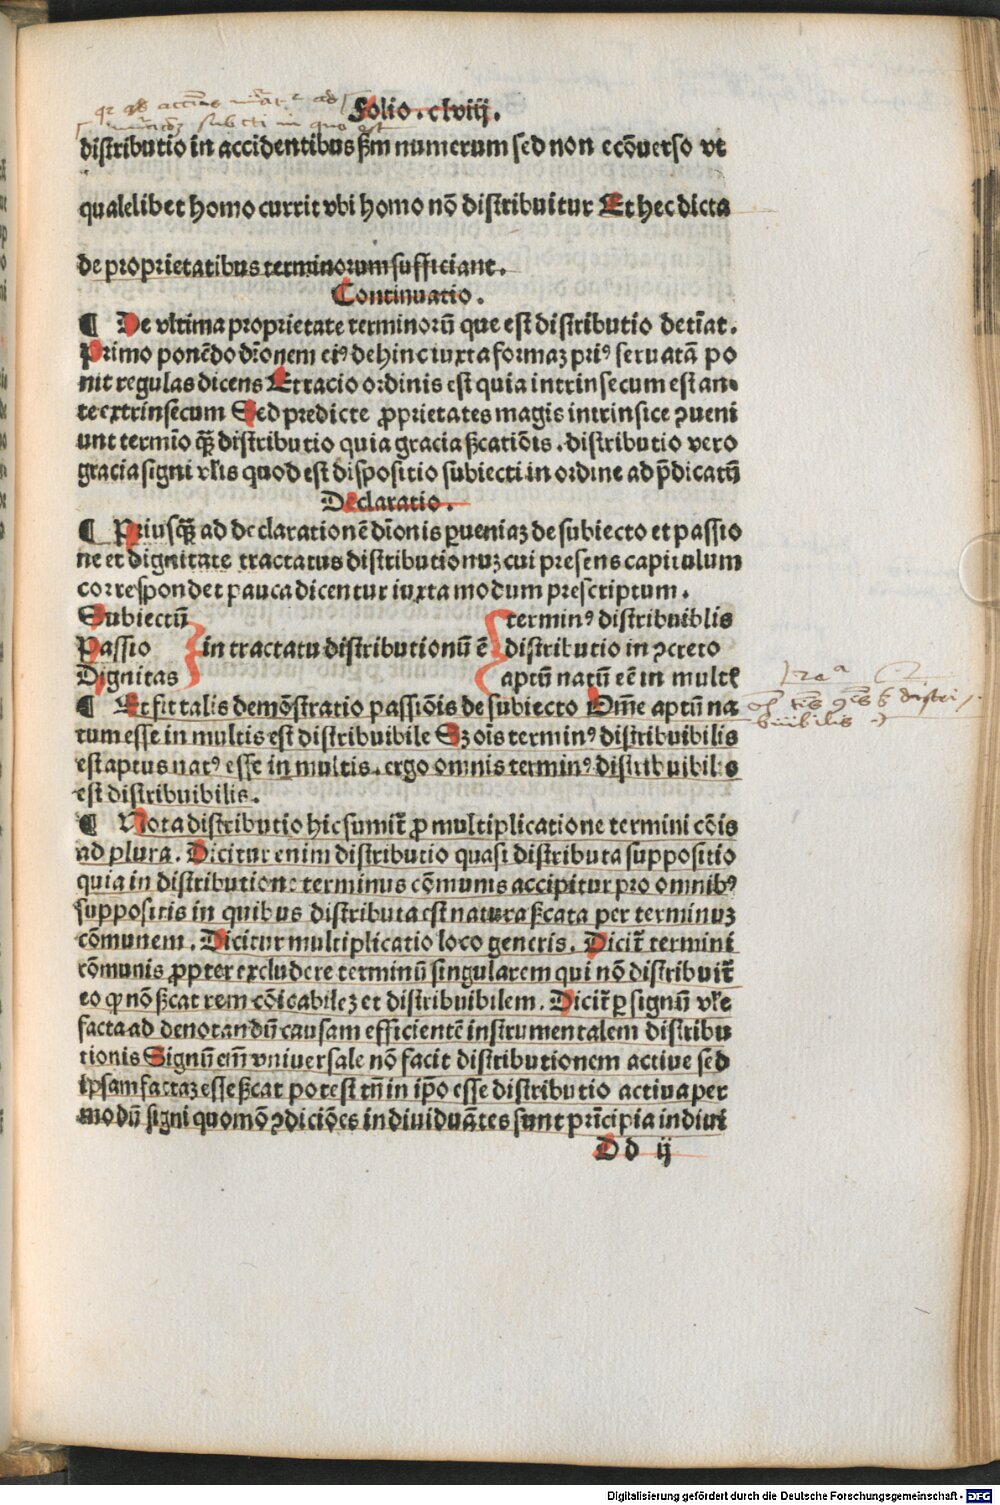 Folio . clviij.
distributio in accidentibus ẜm numerum sed non ecōuerso vt
qualelibet homo currit vbi homo nō distribuitur Et hec dicta
de proprietatibus terminorum sufficiant.
Continuatio .
¶ De vltima proprietate terminorū que est distributio det̄iat .
Primo ponēdo dīonem eiꝰ dehinc iuxta formaꝫ priꝰ seruatā po
nit regulas dicens Et racio ordinis est quia intrinsecum est an⸗
te extrinsecum Sed predicte ꝓprietates magis intrinsice ꝯueni
unt termīo qꝫ̄ distributio quia gracia ẜcatiōis . distributio vero
gracia signi vl̄is quod est dispositio subiecti in ordine ad p̄dicatū
Declaratio .
¶ Priusqꝫ̄ ad declarationē dīonis ꝑueniaꝫ de subiecto et passio
ne et dignitate tractatus distributionuꝫ cui presens capitulum
correspondet pauca dicentur iuxta modum prescriptum .
Subiectū
Passio
Dignitas
in tractatu distributionū ē
terminꝰ distribuiblis
distributio in ꝯcreto
aptū natū eē in multꝭ
¶ Et fit talis demōstratio passiōis de subiecto Om̄e aptū na
tum esse in multis est distribuibile Sꝫ oīs terminꝰ distribuibilis
est aptus natꝰ esse in multis . ergo omnis terminꝰ distribuibilis
est distribuibilis .
¶ Nota distributio hic sumit̄ ꝓ multiplicatione termini cōis
ad plura . Dicitur enim distributio quasi distributa suppositio
quia in distributione terminus cōmunis accipitur pro omnibꝰ
suppositis in quibus distributa est natura ẜcata per terminuꝫ
cōmunem . Dicitur multiplicatio loco generis . Dicit̄ termini
cōmunis ꝓpter excludere terminū singularem qui nō distribuit̄
eo ꝙ nō ẜcat rem cōicabileꝫ et distribuibilem . Dicit̄ ꝑ signū vl̄e
facta ad denotandū causam efficientē instrumentalem distribu
tionis Signū em̄ vniuersale nō facit distributionem actiue sed
ipsam factaꝫ esse ẜcat potest tn̄ in ip̄o esse distributio actiua per
modū signi quomō ꝯdiciōes indiuiduātes sunt prīcipia indiui
D d ij
Digitalisierung gefördert durch die Deutsche Forschungsgemeinschaft - DFG